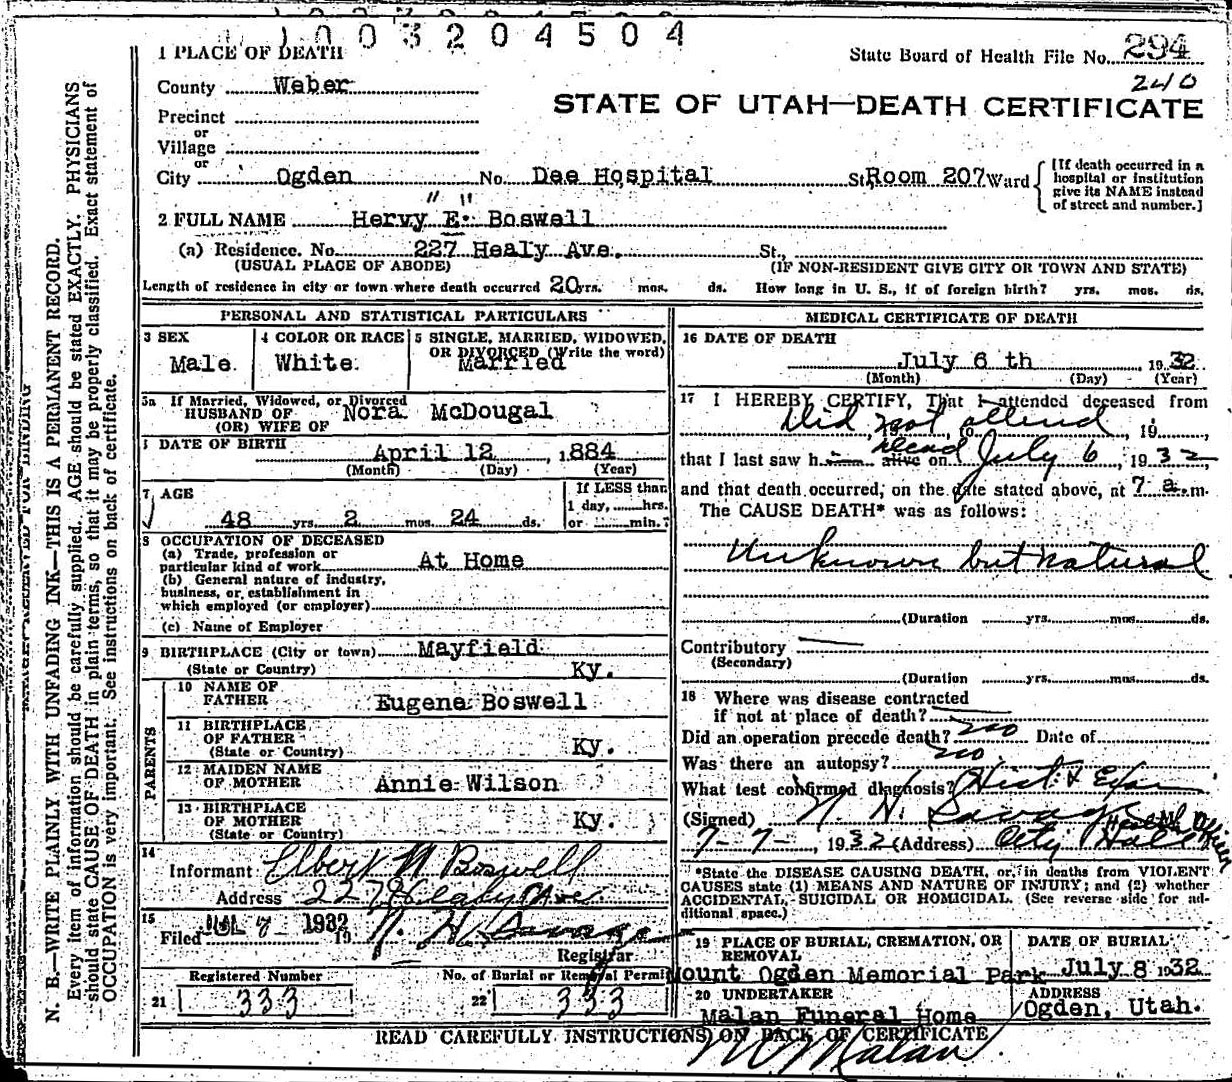 1003204504
1 PLACE OF DEATH
State Board of Health File No. 294
240
County Weber
STATE OF UTAH—DEATH CERTIFICATE
Precinct
or
Village
or
City Ogden No. Dee Hospital St., Room 207 Ward
[If death occurred in a hospital or institution give its NAME instead of street and number.]
2 FULL NAME Hervy "E." Boswell
(a) Residence. No. 227 Healy Ave. St.,
(USUAL PLACE OF ABODE) (IF NON-RESIDENT GIVE CITY OR TOWN AND STATE)
Length of residence in city or town where death occurred 20 yrs. mos. ds. How long in U. S., if of foreign birth? yrs. mos. ds.
PERSONAL AND STATISTICAL PARTICULARS
3 SEX
Male
4 COLOR OR RACE
White
5 SINGLE, MARRIED, WIDOWED,
OR DIVORCED (Write the word)
Married
5a If Married, Widowed, or Divorced
HUSBAND OF Nora McDougal
(OR) WIFE OF
DATE OF BIRTH April 12, 1884
(Month) (Day) (Year)
7 AGE
48 yrs. 2 mos. 24 ds.
If LESS than
1 day, hrs.
or min.?
8 OCCUPATION OF DECEASED
(a) Trade, profession or
particular kind of work At Home
(b) General nature of industry,
business, or establishment in
which employed (or employer)
(c) Name of Employer
9 BIRTHPLACE (City or town) Mayfield
(State or Country) Ky.
PARENTS
10 NAME OF
FATHER Eugene Boswell
11 BIRTHPLACE
OF FATHER
(State or Country) Ky.
12 MAIDEN NAME
OF MOTHER Annie Wilson
13 BIRTHPLACE
OF MOTHER
(State or Country) Ky.
14
Informant Elbert M Boswell
Address 227 Healy Ave
15
Filed JUL 7 1932 19 N. H. Savage
Registrar
Registered Number No. of Burial or Removal Permit
21 333 22 333
MEDICAL CERTIFICATE OF DEATH
16 DATE OF DEATH
July 6 th 1932
(Month) (Day) (Year)
17 I HEREBY CERTIFY, That I attended deceased from
Did not attend
, 19 , to , 19 ,
that I last saw h alive on dead July 6, 1932
and that death occurred, on the date stated above, at 7 a. m.
The CAUSE DEATH* was as follows:
Unknown but natural
(Duration yrs. mos. ds.
Contributory
(Secondary)
(Duration yrs. mos. ds.
18 Where was disease contracted
if not at place of death?
Did an operation precede death? no Date of
Was there an autopsy? no
What test confirmed diagnosis? Hist & Exam
(Signed) N. H. Savage
Health Officer
7-7-, 1932 (Address) City Hall
*State the DISEASE CAUSING DEATH, or, in deaths from VIOLENT
CAUSES state (1) MEANS AND NATURE OF INJURY; and (2) whether
ACCIDENTAL, SUICIDAL OR HOMICIDAL. (See reverse side for ad-
ditional space.)
19 PLACE OF BURIAL, CREMATION, OR
REMOVAL
Mount Ogden Memorial Park
DATE OF BURIAL
July 8 1932
20 UNDERTAKER
Malan Funeral Home
ADDRESS
Ogden, Utah.
READ CAREFULLY INSTRUCTIONS ON BACK OF CERTIFICATE
Malan
N. B.—WRITE PLAINLY WITH UNFADING INK—THIS IS A PERMANENT RECORD.
Every item of information should be carefully supplied. AGE should be stated EXACTLY. PHYSICIANS
should state CAUSE OF DEATH in plain terms, so that it may be properly classified. Exact statement of
OCCUPATION is very important. See instructions on back of certificate.